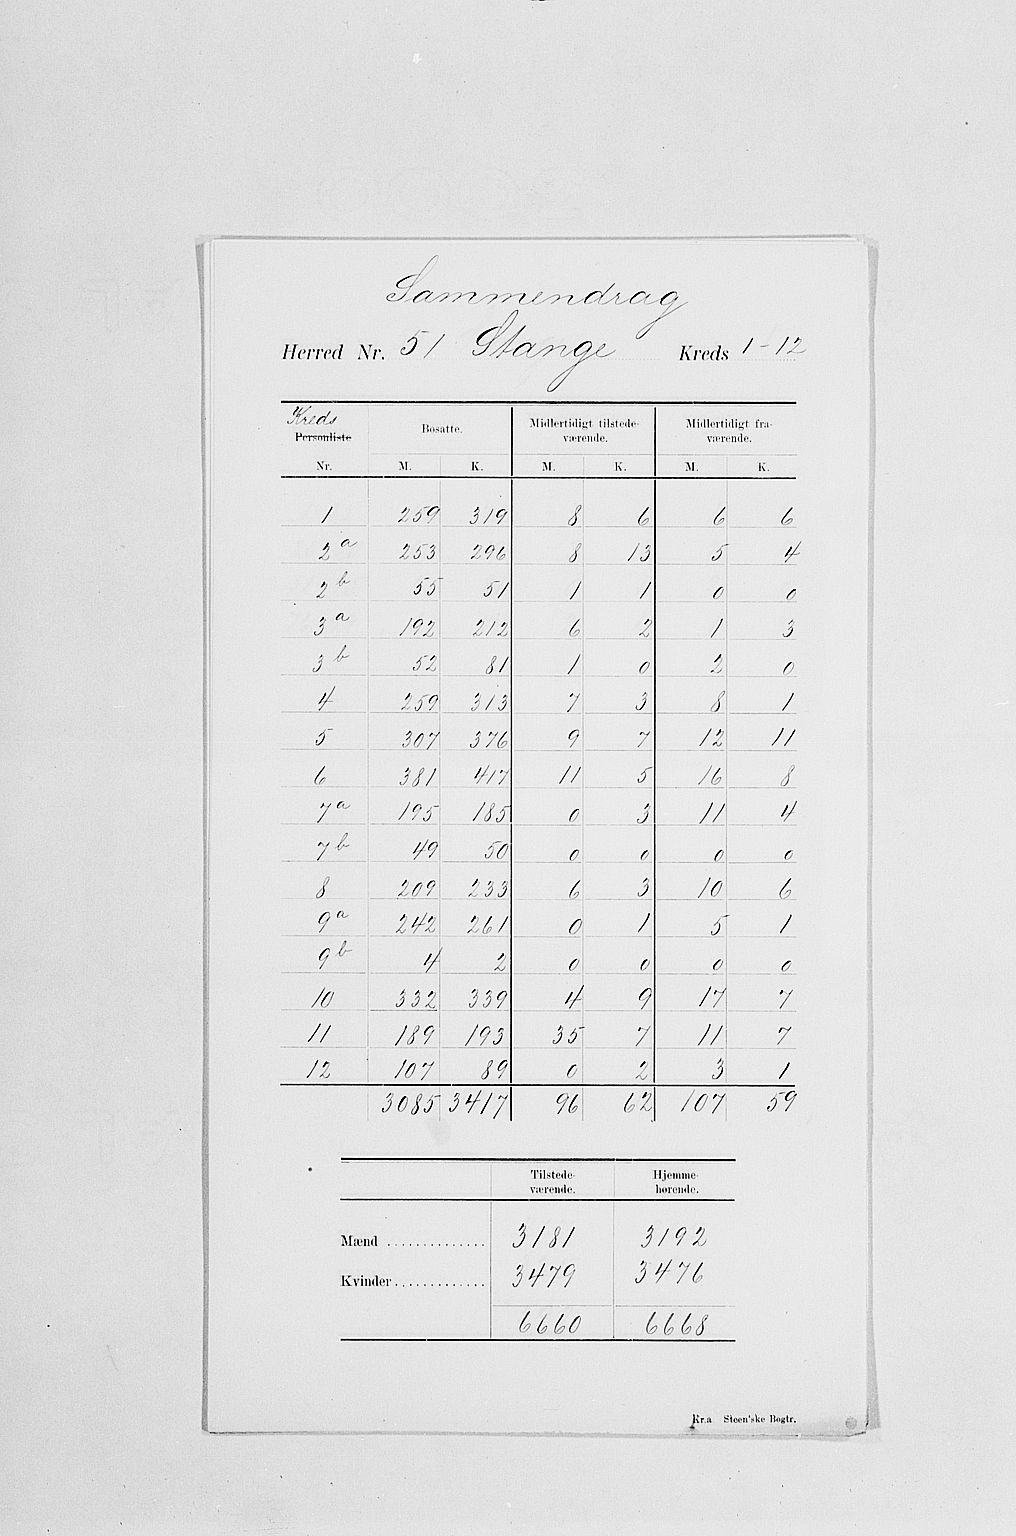 Sammendrag
Herred Nr. 51 Stange Kreds 1-12
Kreds
Personliste Nr. Bosatte. Midlertidigt tilstede-værende. Midlertidigt fra-værende.
M. K. M. K. M. K.
1 259 319 8 6 6 6
2a 253 296 8 13 5 4
2b 55 51 1 1 0 0
3a 192 212 6 2 1 3
3b 52 81 1 0 2 0
4 259 313 7 3 8 1
5 307 376 9 7 12 11
6 381 417 11 5 16 8
7a 195 185 0 3 11 4
7b 49 50 0 0 0 0
8 209 233 6 3 10 6
9a 242 261 0 1 5 1
9b 4 2 0 0 0 0
10 332 339 4 9 17 7
11 189 193 35 7 11 7
12 107 89 0 2 3 1
3085 3417 96 62 107 59
Tilstede-værende. Hjemme-hørende.
Mænd .............. 3181 3192
Kvinder............. 3479 3476
6660 6668
Kr.a Steen'ske Bogtr.